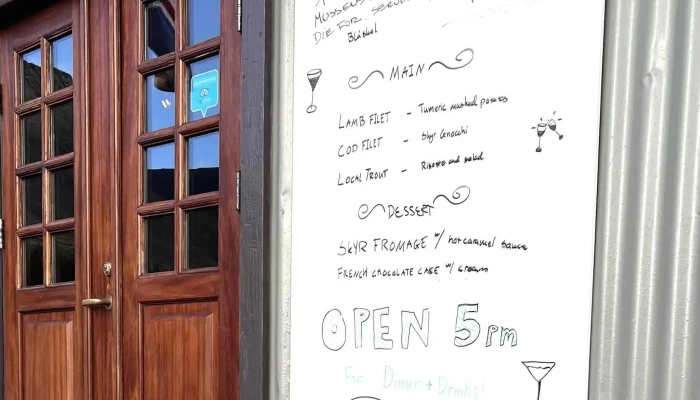 MUSSELS
DIE FOR. SERVED
MAIN
LAMB FILET - Tumeric mashed potatoes
COD FILET - Skyr Gnocchi
LOCAL TROUT - Risotto and salad
DESSERT
SKYR FROMAGE w/ hot caramel sauce
FRENCH CHOCOLATE CAKE w/ cream
OPEN 5pm
For Dinner + Drinks!